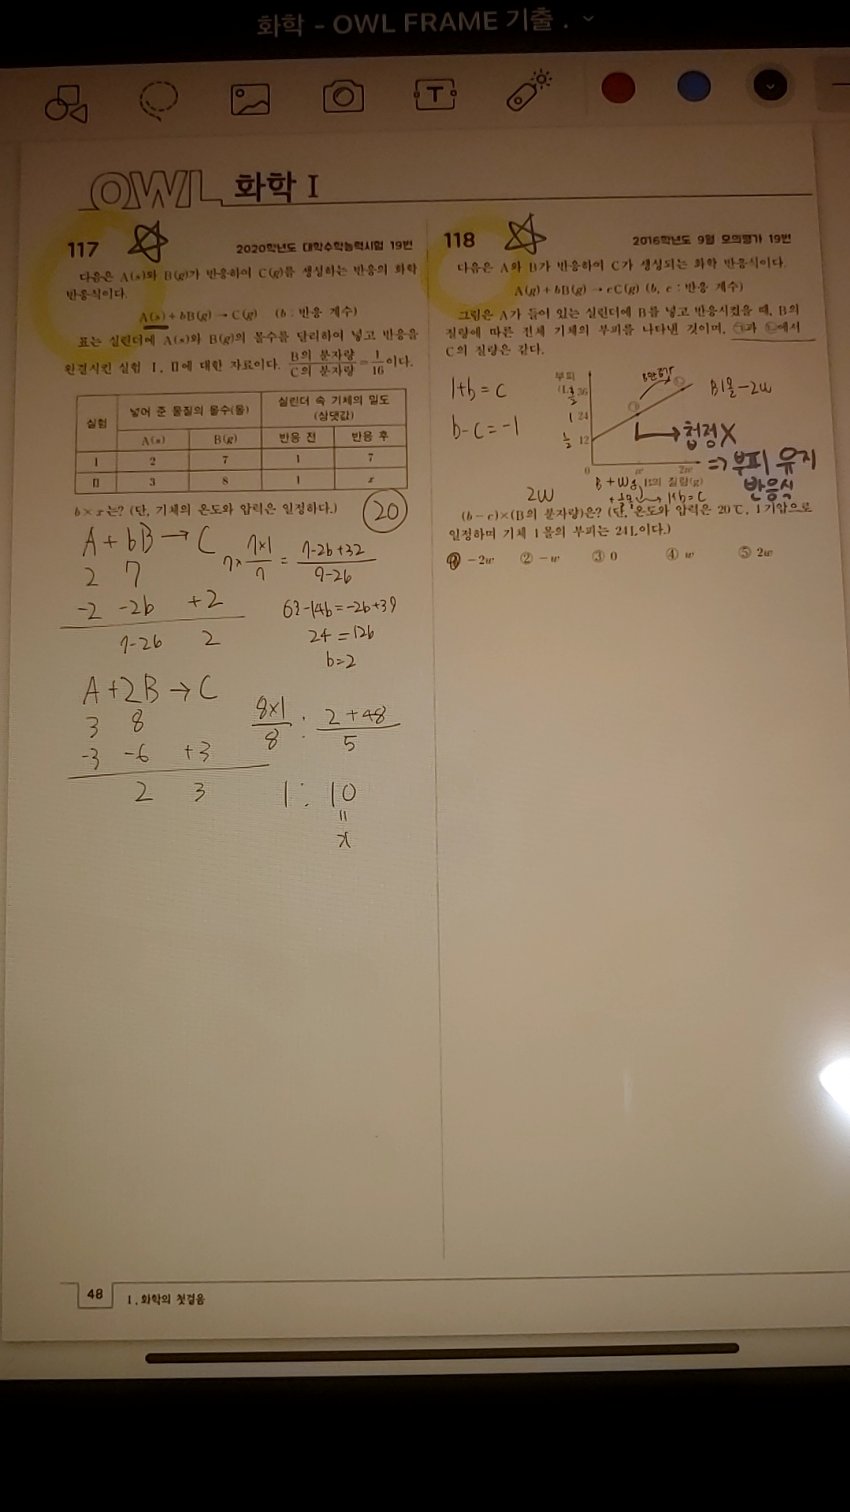 화학 - OWL FRAME 기출 .
T
OWL 화학 I
117
2020학년도 대학수학능력시험 19번
다음은 A(s)와 B(g)가 반응하여 C(g)를 생성하는 반응의 화학
반응식이다.
A(s) + bB(g) → C(g) (b : 반응 계수)
표는 실린더에 A(s)와 B(g)의 몰수를 달리하여 넣고 반응을
완결시킨 실험 I, II에 대한 자료이다. B의 분자량/C의 분자량 = 1/16이다.
실험 넣어 준 물질의 몰수(몰) 실린더 속 기체의 밀도(상댓값)
A(s) B(g) 반응 전 반응 후
I 2 7 1 7
II 3 8 1 x
b × x는? (단, 기체의 온도와 압력은 일정하다.)
20
A + bB → C
2 7
-2 -2b +2
7-2b 2
7× 7×1/7 = 7-2b+32/9-2b
63-14b = -2b+39
24 = 12b
b=2
A + 2B → C
3 8
-3 -6 +3
2 3
8×1/8 : 2+48/5
1 : 10
=
x
118
2016학년도 9월 모의평가 19번
다음은 A와 B가 반응하여 C가 생성되는 화학 반응식이다.
A(g) + bB(g) → cC(g) (b, c : 반응 계수)
그림은 A가 들어 있는 실린더에 B를 넣고 반응시켰을 때, B의
질량에 따른 전체 기체의 부피를 나타낸 것이며, ㉠과 ㉡에서
C의 질량은 같다.
1+b = C
b-C = -1
부피
36
1 24
1/2 12
0 w 2w
B의 질량(g)
㉠
㉡
B1몰-2w
첨정X
⇒ 부피 유지
반응식
2W
B + Wg
1+b=C
(b-c)×(B의 분자량)은? (단, 온도와 압력은 20℃, 1기압으로
일정하며 기체 1몰의 부피는 24L이다.)
① -2w ② -w ③ 0 ④ w ⑤ 2w
48
I. 화학의 첫걸음